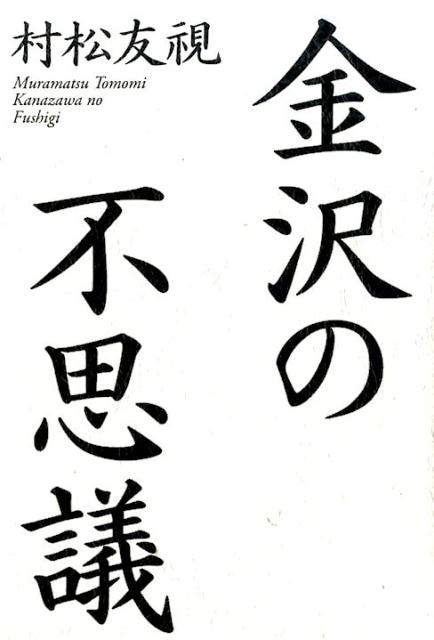 村松友視
Muramatsu Tomomi
Kanazawa no
Fushigi
金沢の
不思議